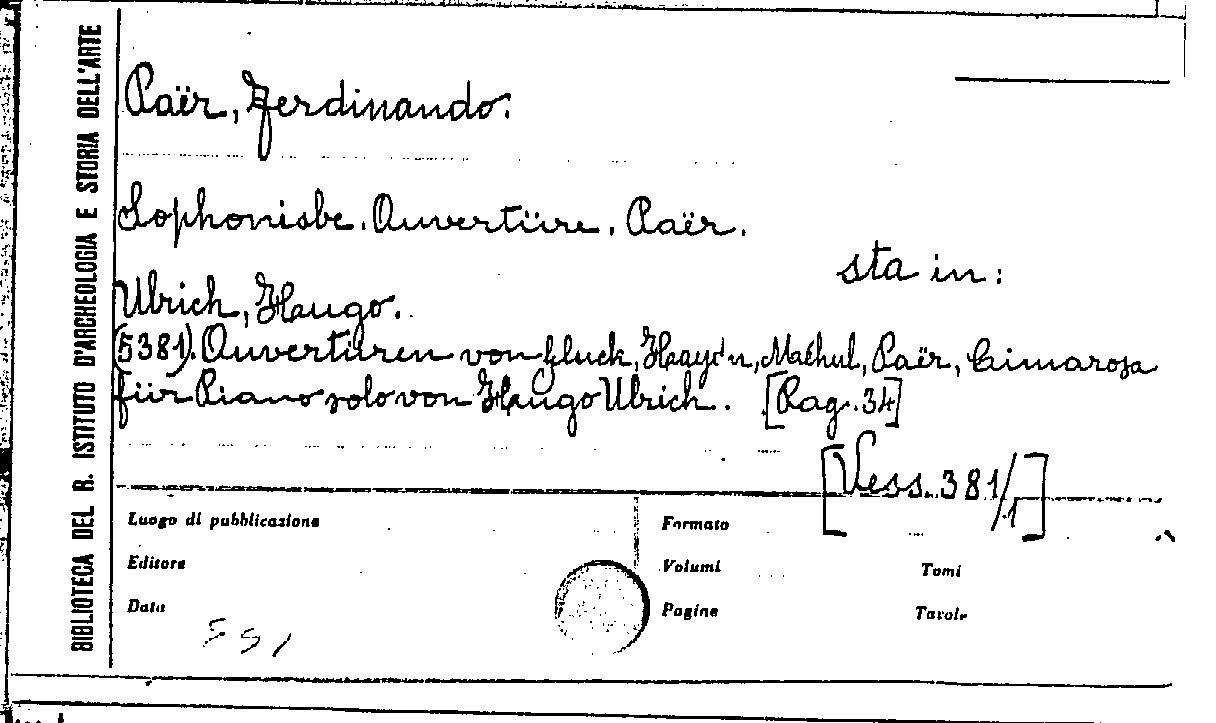 BIBLIOTECA DEL R. ISTITUTO D'ARCHEOLOGIA E STORIA DELL'ARTE
Paër, Ferdinando.
Sophonisbe. Ouvertüre. Paër.
sta in:
Ulrich, Hugo.
(5381). Ouvertüren von Gluck, Haydn, Méhul, Paër, Cimarosa
für Piano solo von Hugo Ulrich. [Pag. 34]
[Vess. 381/1]
Luogo di pubblicazione
Formato
Editore
Volumi
Tomi
Data
Pagine
Tavole
551